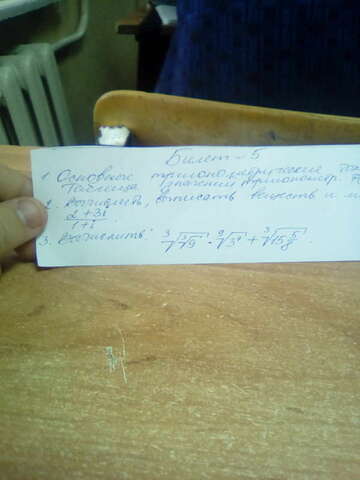 Билет - 5
1. Основные тригонометрические
Таблица значений тригонометр.
2. Вычислить, выписать веществ и м
2 + 3i
1 + i
3. Вычислить: ∛∛9 · ⁹√3⁴ + ∛15 5/8.